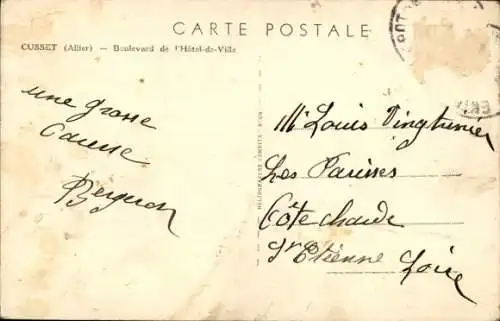 CARTE POSTALE
CUSSET (Allier) — Boulevard de l'Hôtel-de-Ville
une grosse
Caresse
Mr Louis Vingtrinier
Les Parisses
Côte chaude
St Etienne Loire